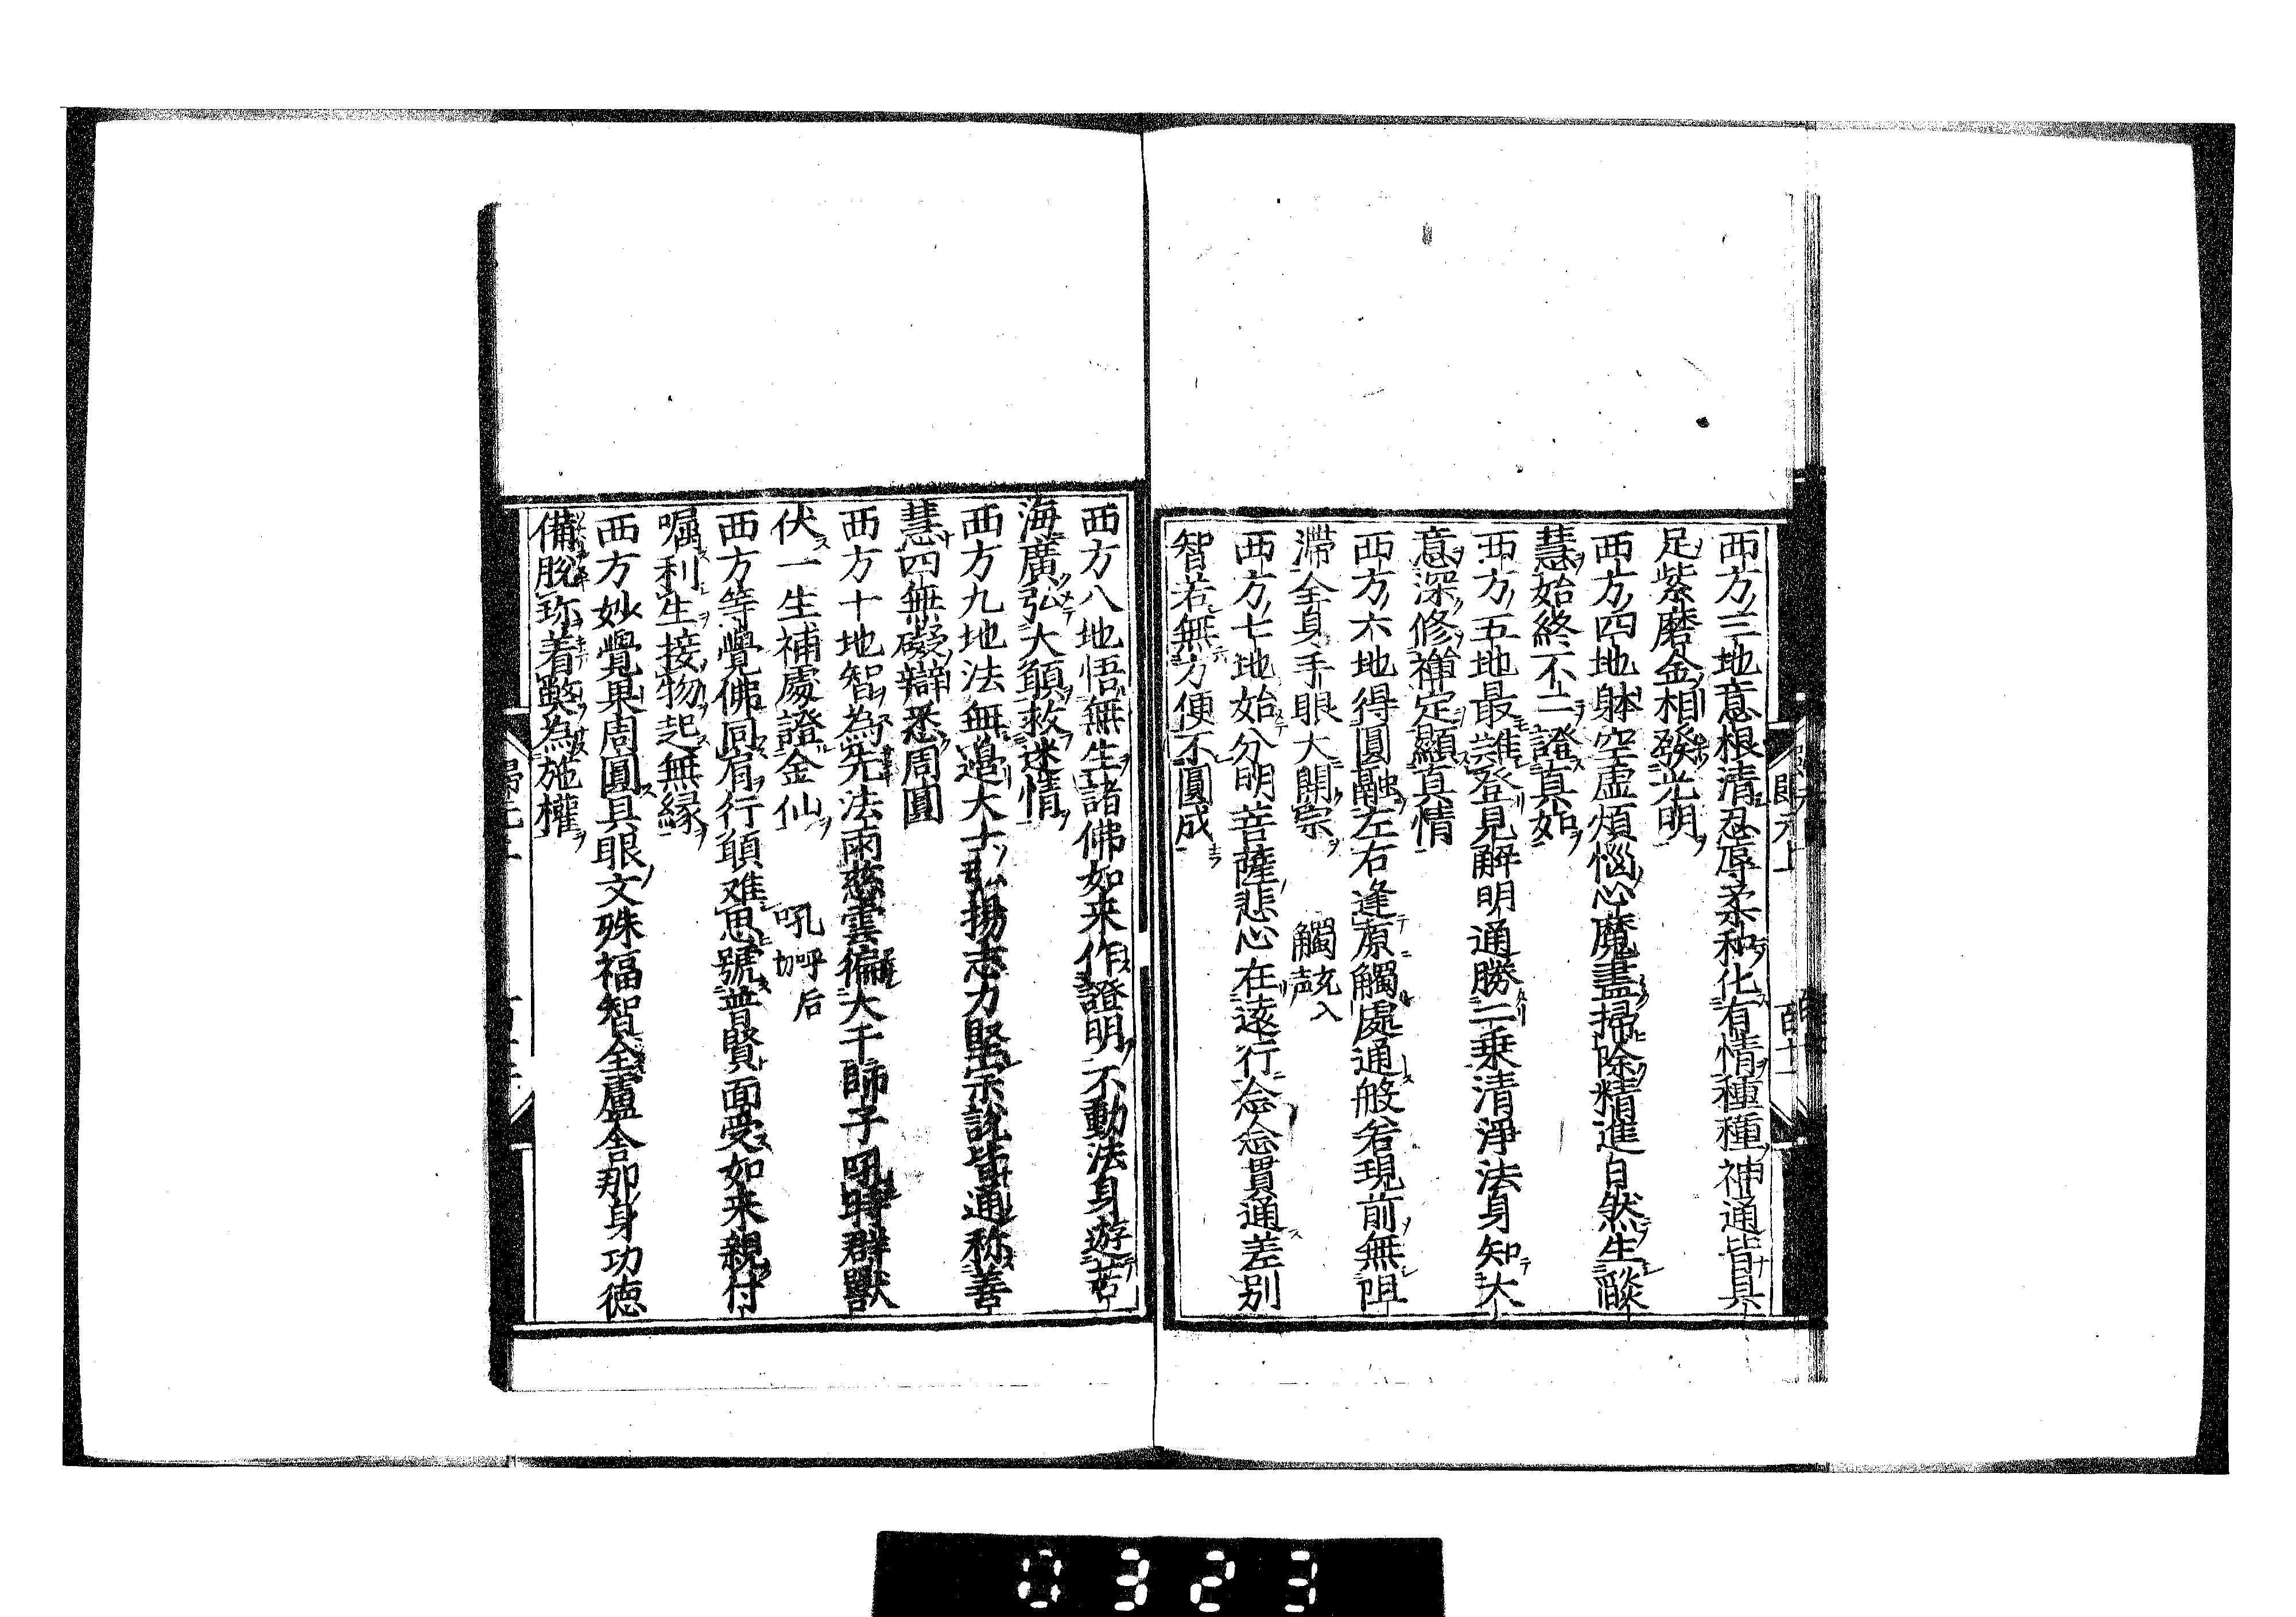 西方三地意根清忍辱柔和化有情種種神通皆具
足紫磨金相發光明
西方四地躰空虛煩惱心魔盡掃除精進自然生燄
慧始終不二證真如
西方五地最難登見解明通勝二乗清淨法身知大
意深修禅定顯真情
西方六地得圓融左右逢原觸處通般若現前無阻
滞全身手眼大開宗 觸㲉入声
西方七地始分明菩薩悲心在遠行念念貫通差別
智若無方便不圓成
西方八地悟無生諸佛如来作證明不動法身遊苦
海廣弘大願救迷情
西方九地法無邉大士弘揚志力堅宗説皆通称善
慧四無礙辯悉周圓
西方十地智為先法雨慈雲徧大千師子吼時群獸
伏一生補處證金仙 吼呼后切
西方等覺佛同肩行願难思號普賢面受如来親付
嘱利生接物起無縁
西方妙覺果周圓具眼文殊福智全盧舎那身功徳
備脱珎着弊為施權
0323